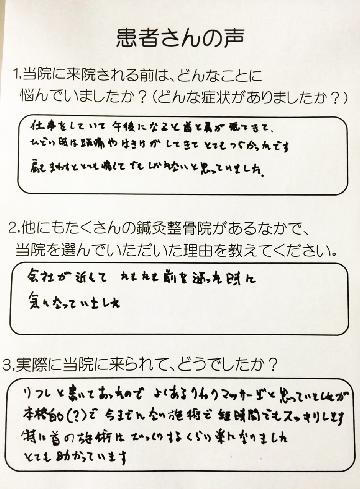 患者さんの声
1.当院に来院される前は、どんなことに
悩んでいましたか？（どんな症状がありましたか？）
仕事をしていて午後になると首と肩が張ってきて、
ひどい時は頭痛やはきけがしてきてとてもつらかったです
肩もまわすととても痛くてどうしようもないと思っていました。
2.他にもたくさんの鍼灸整骨院があるなかで、
当院を選んでいただいた理由を教えてください。
会社が近くて たまたま前を通った時に
気になっていました
3.実際に当院に来られて、どうでしたか？
リフレと書いてあったので よくあるリラクマッサージと思っていましたが
本格的(?)で今までにない施術で短時間でもスッキリします
特に首の施術はびっくりするくらい楽になりました
とても助かっています